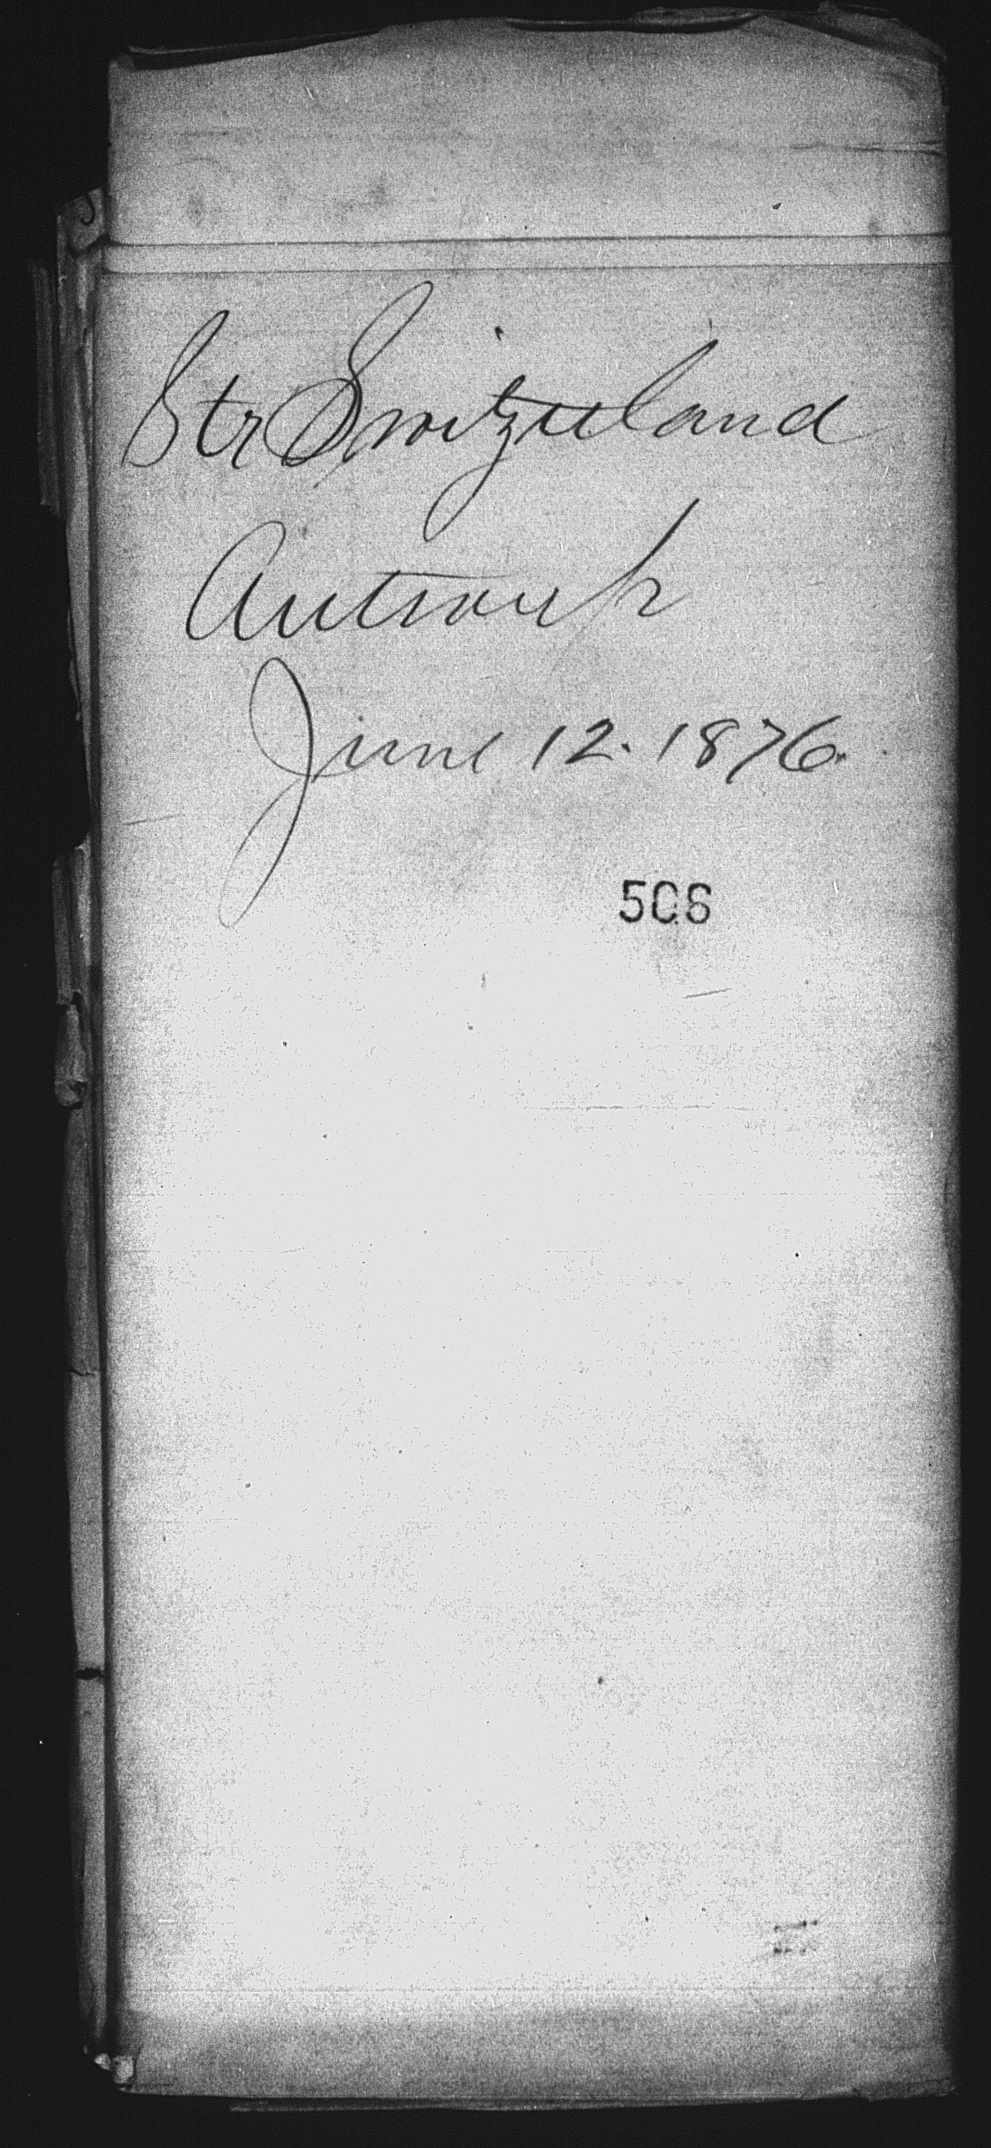 Str Switzerland
Antwerp
June 12. 1876.
506